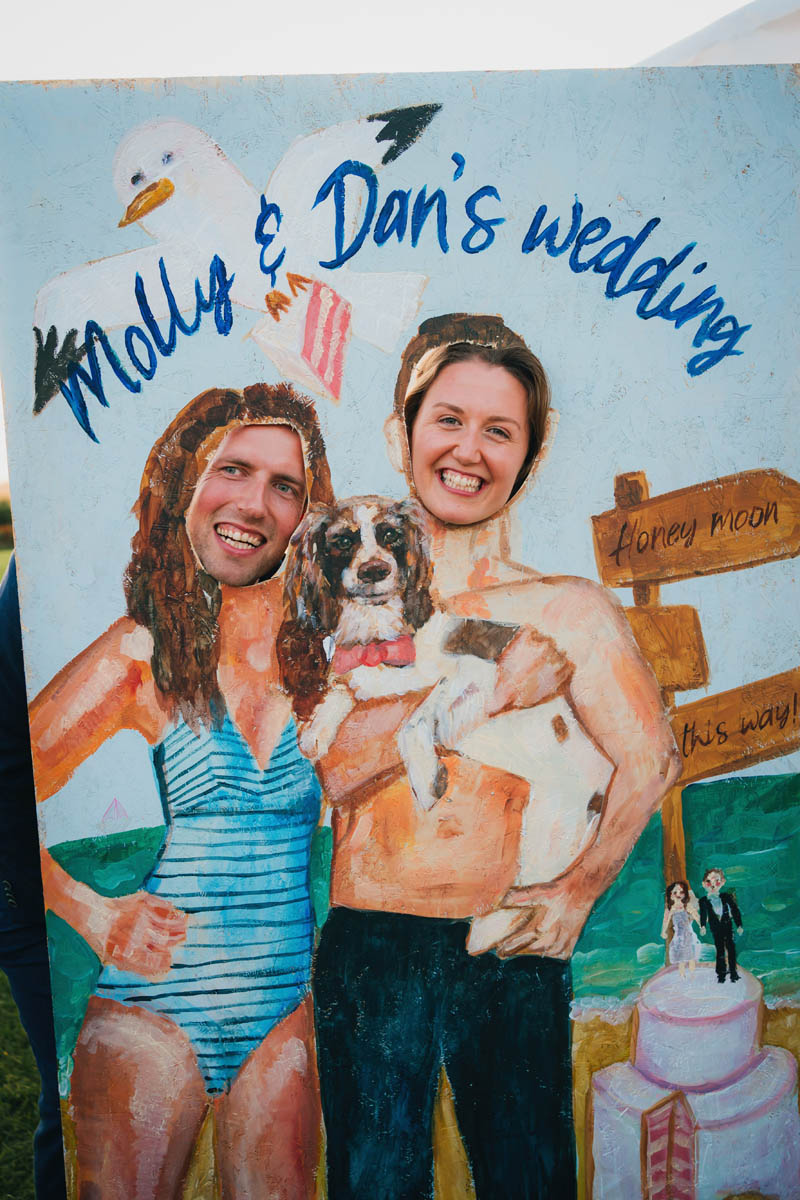 Molly & Dan's wedding
Honey moon
this way!